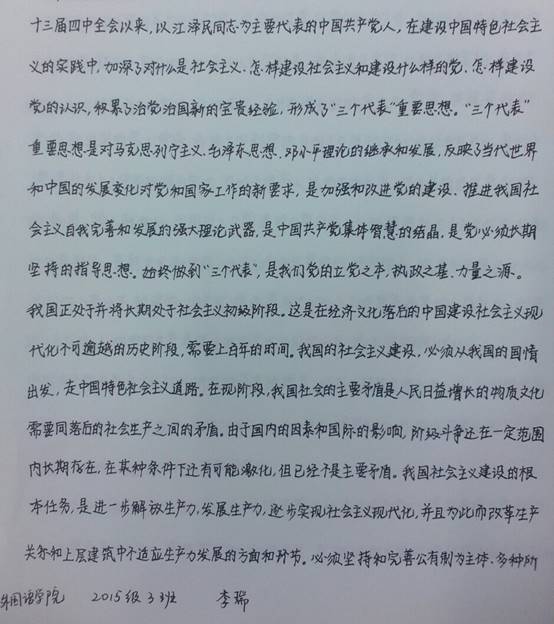 十三届四中全会以来，以江泽民同志为主要代表的中国共产党人，在建设中国特色社会主
义的实践中，加深了对什么是社会主义、怎样建设社会主义和建设什么样的党、怎样建设
党的认识，积累了治党治国新的宝贵经验，形成了“三个代表”重要思想。“三个代表”
重要思想是对马克思列宁主义、毛泽东思想、邓小平理论的继承和发展，反映了当代世界
和中国的发展变化对党和国家工作的新要求，是加强和改进党的建设、推进我国社
会主义自我完善和发展的强大理论武器，是中国共产党集体智慧的结晶，是党必须长期
坚持的指导思想。始终做到“三个代表”，是我们党的立党之本、执政之基、力量之源。
我国正处于并将长期处于社会主义初级阶段。这是在经济文化落后的中国建设社会主义现
代化不可逾越的历史阶段，需要上百年的时间。我国的社会主义建设，必须从我国的国情
出发，走中国特色社会主义道路。在现阶段，我国社会的主要矛盾是人民日益增长的物质文化
需要同落后的社会生产之间的矛盾。由于国内的因素和国际的影响，阶级斗争还在一定范围
内长期存在，在某种条件下还有可能激化，但已经不是主要矛盾。我国社会主义建设的根
本任务，是进一步解放生产力，发展生产力，逐步实现社会主义现代化，并且为此而改革生产
关系和上层建筑中不适应生产力发展的方面和环节。必须坚持和完善公有制为主体、多种所
外国语学院 2015级3班 李瑞